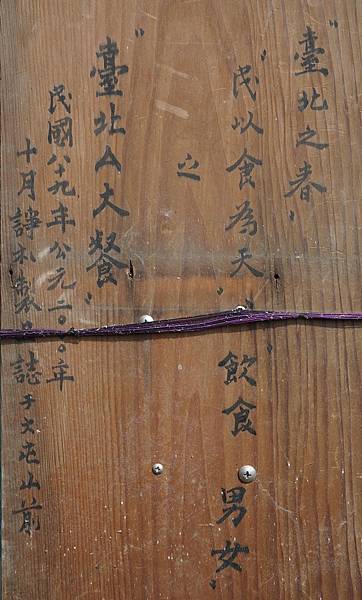 "臺北之春"
"民以食為天、飲食男女"
之
"臺北A大餐"
民國八十九年公元二〇〇〇年
十月 誌于大屯山前